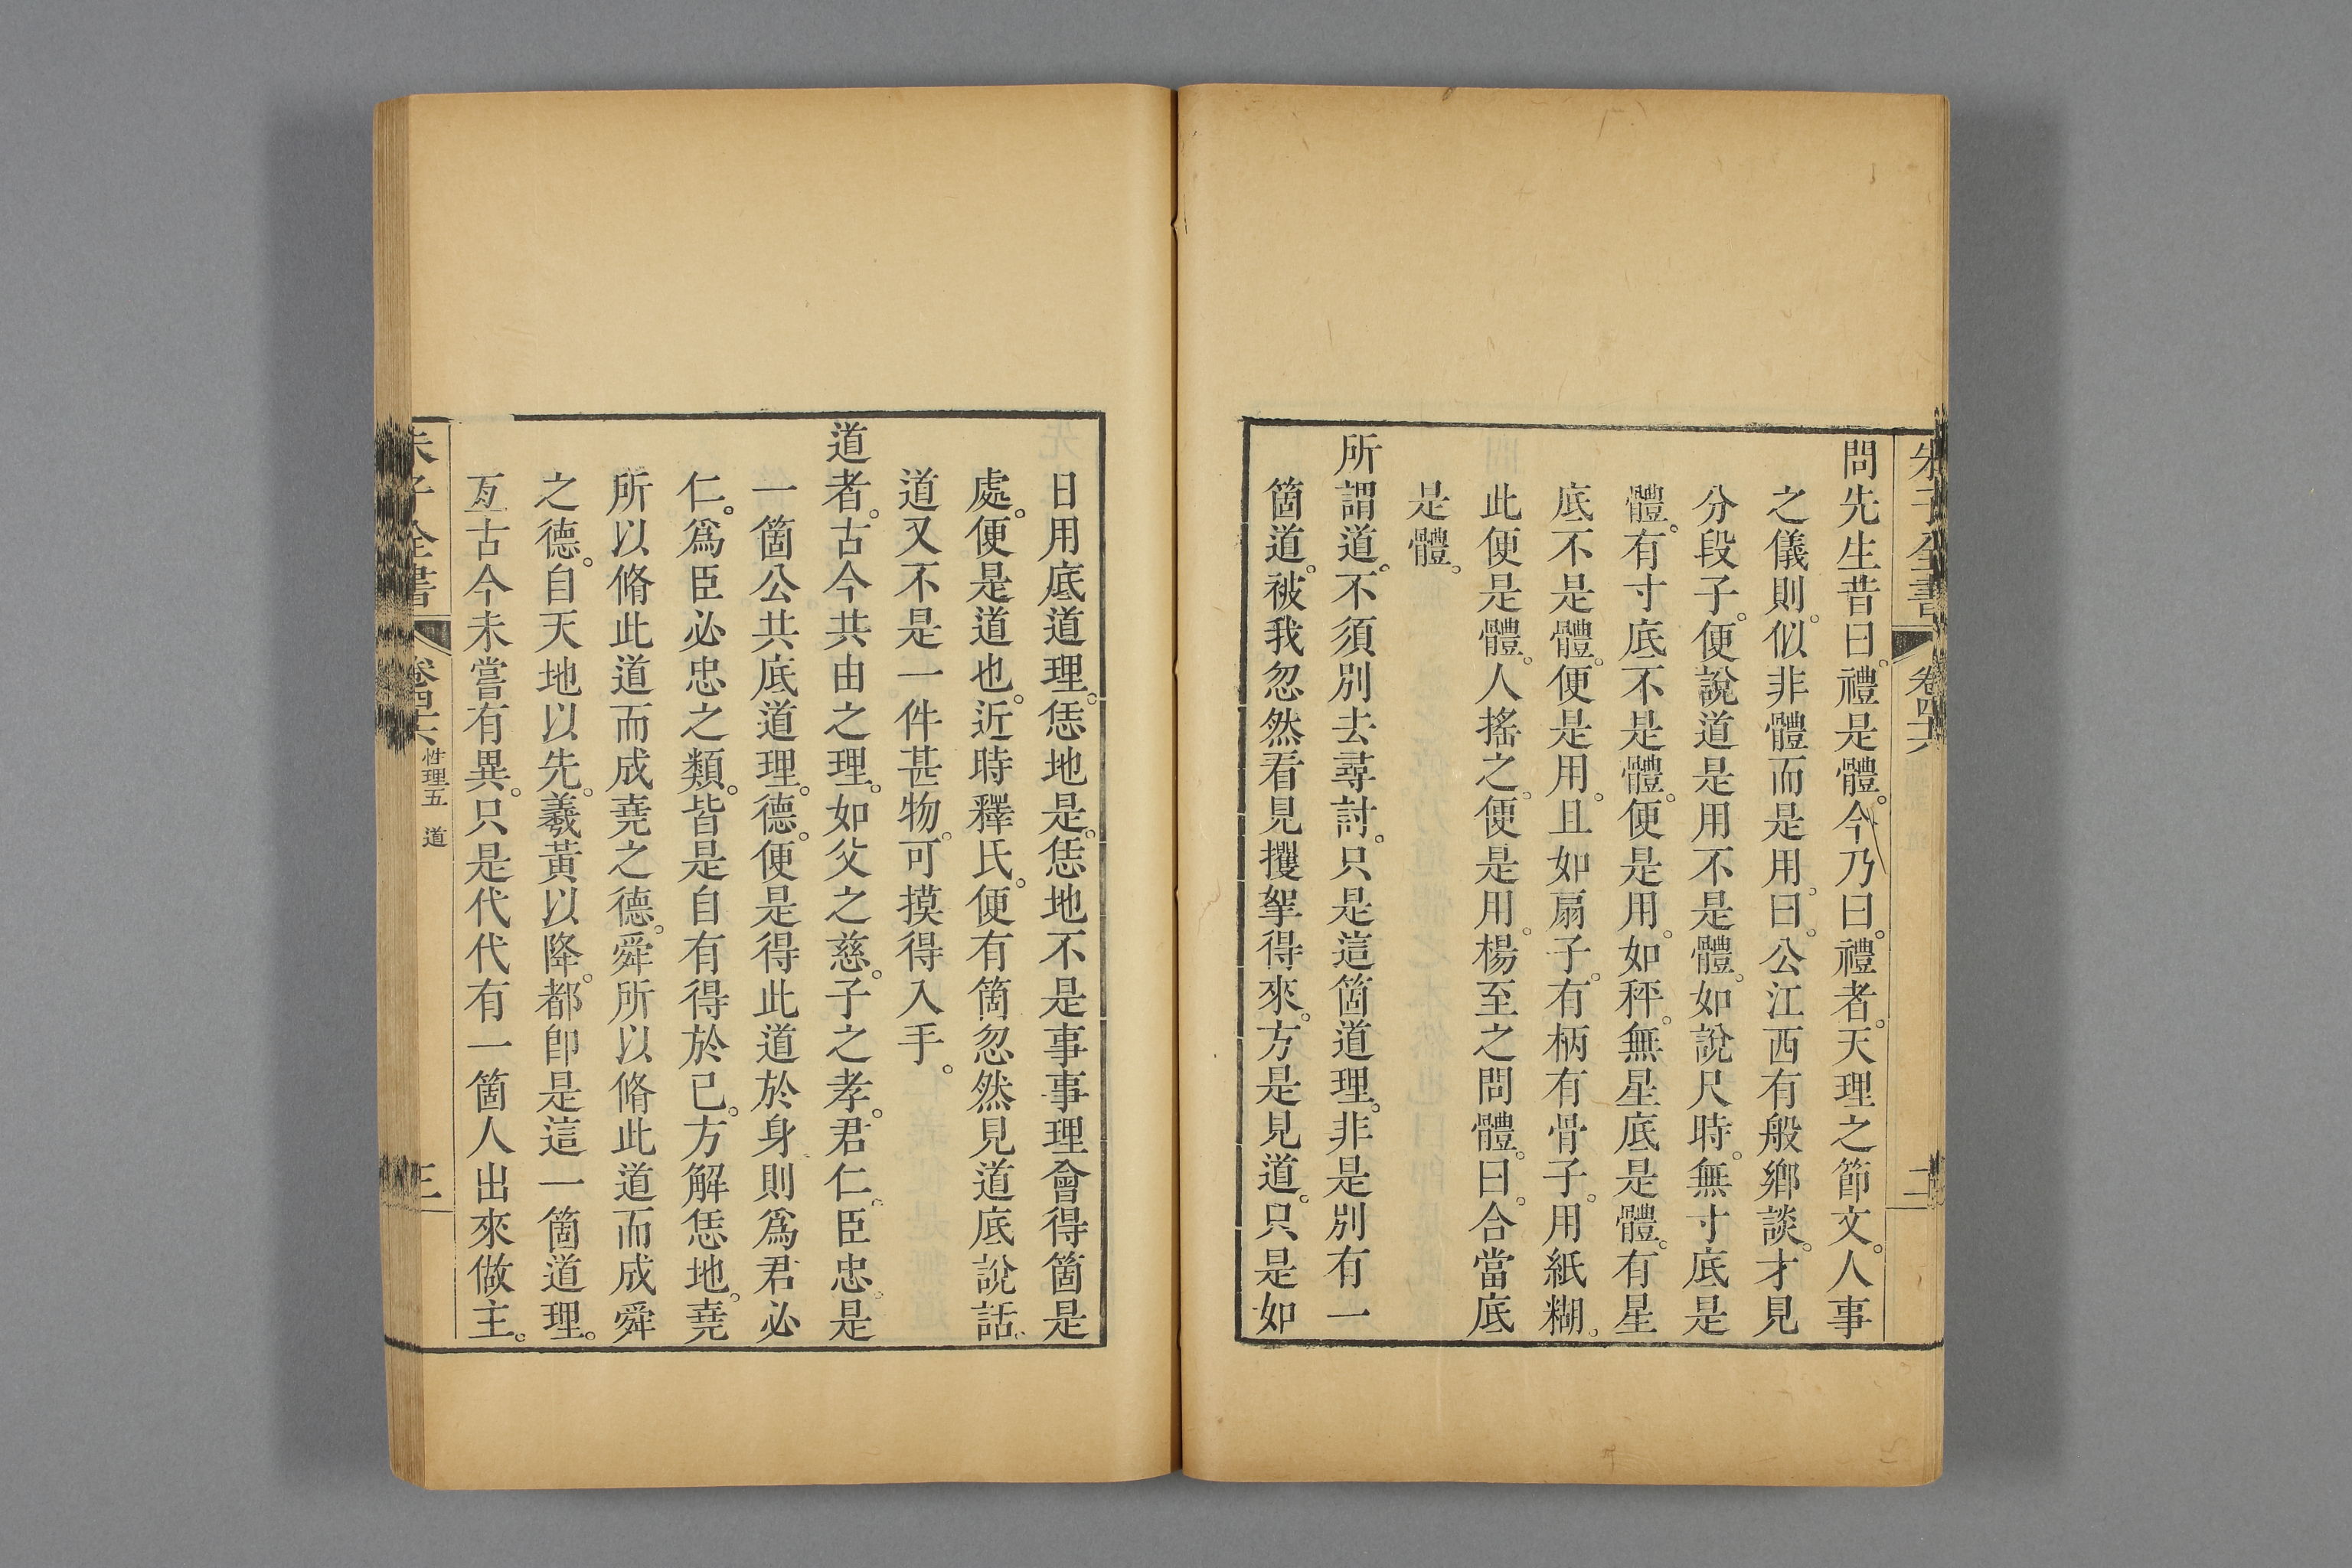 朱子全書 卷四六 二
問先生昔曰。禮是體。今乃曰。禮者。天理之節文。人事
之儀則。似非體而是用。曰。公江西有般鄉談。才見
分段子。便說道是用不是體。如說尺時。無寸底是
體。有寸底不是體。便是用。如秤。無星底是體。有星
底不是體。便是用。且如扇子。有柄有骨子。用紙糊。
此便是體。人搖之。便是用。楊至之問體。曰。合當底
是體。
所謂道。不須別去尋討。只是這箇道理。非是別有一
箇道。被我忽然看見攫拏得來。方是見道。只是如
日用底道理。恁地是。恁地不是事事理會得箇是
處。便是道也。近時釋氏。便有箇忽然見道底說話。
道又不是一件甚物。可摸得入手。
道者。古今共由之理。如父之慈。子之孝。君仁。臣忠。是
一箇公共底道理。德。便是得此道於身。則爲君必
仁。爲臣必忠之類。皆是自有得於己。方解恁地。堯
所以脩此道而成堯之德。舜所以脩此道而成舜
之德。自天地以先。羲黃以降。都卽是這一箇道理。
亙古今未嘗有異。只是代代有一箇人出來做主。
朱子全書 卷四六 性理五 道 三